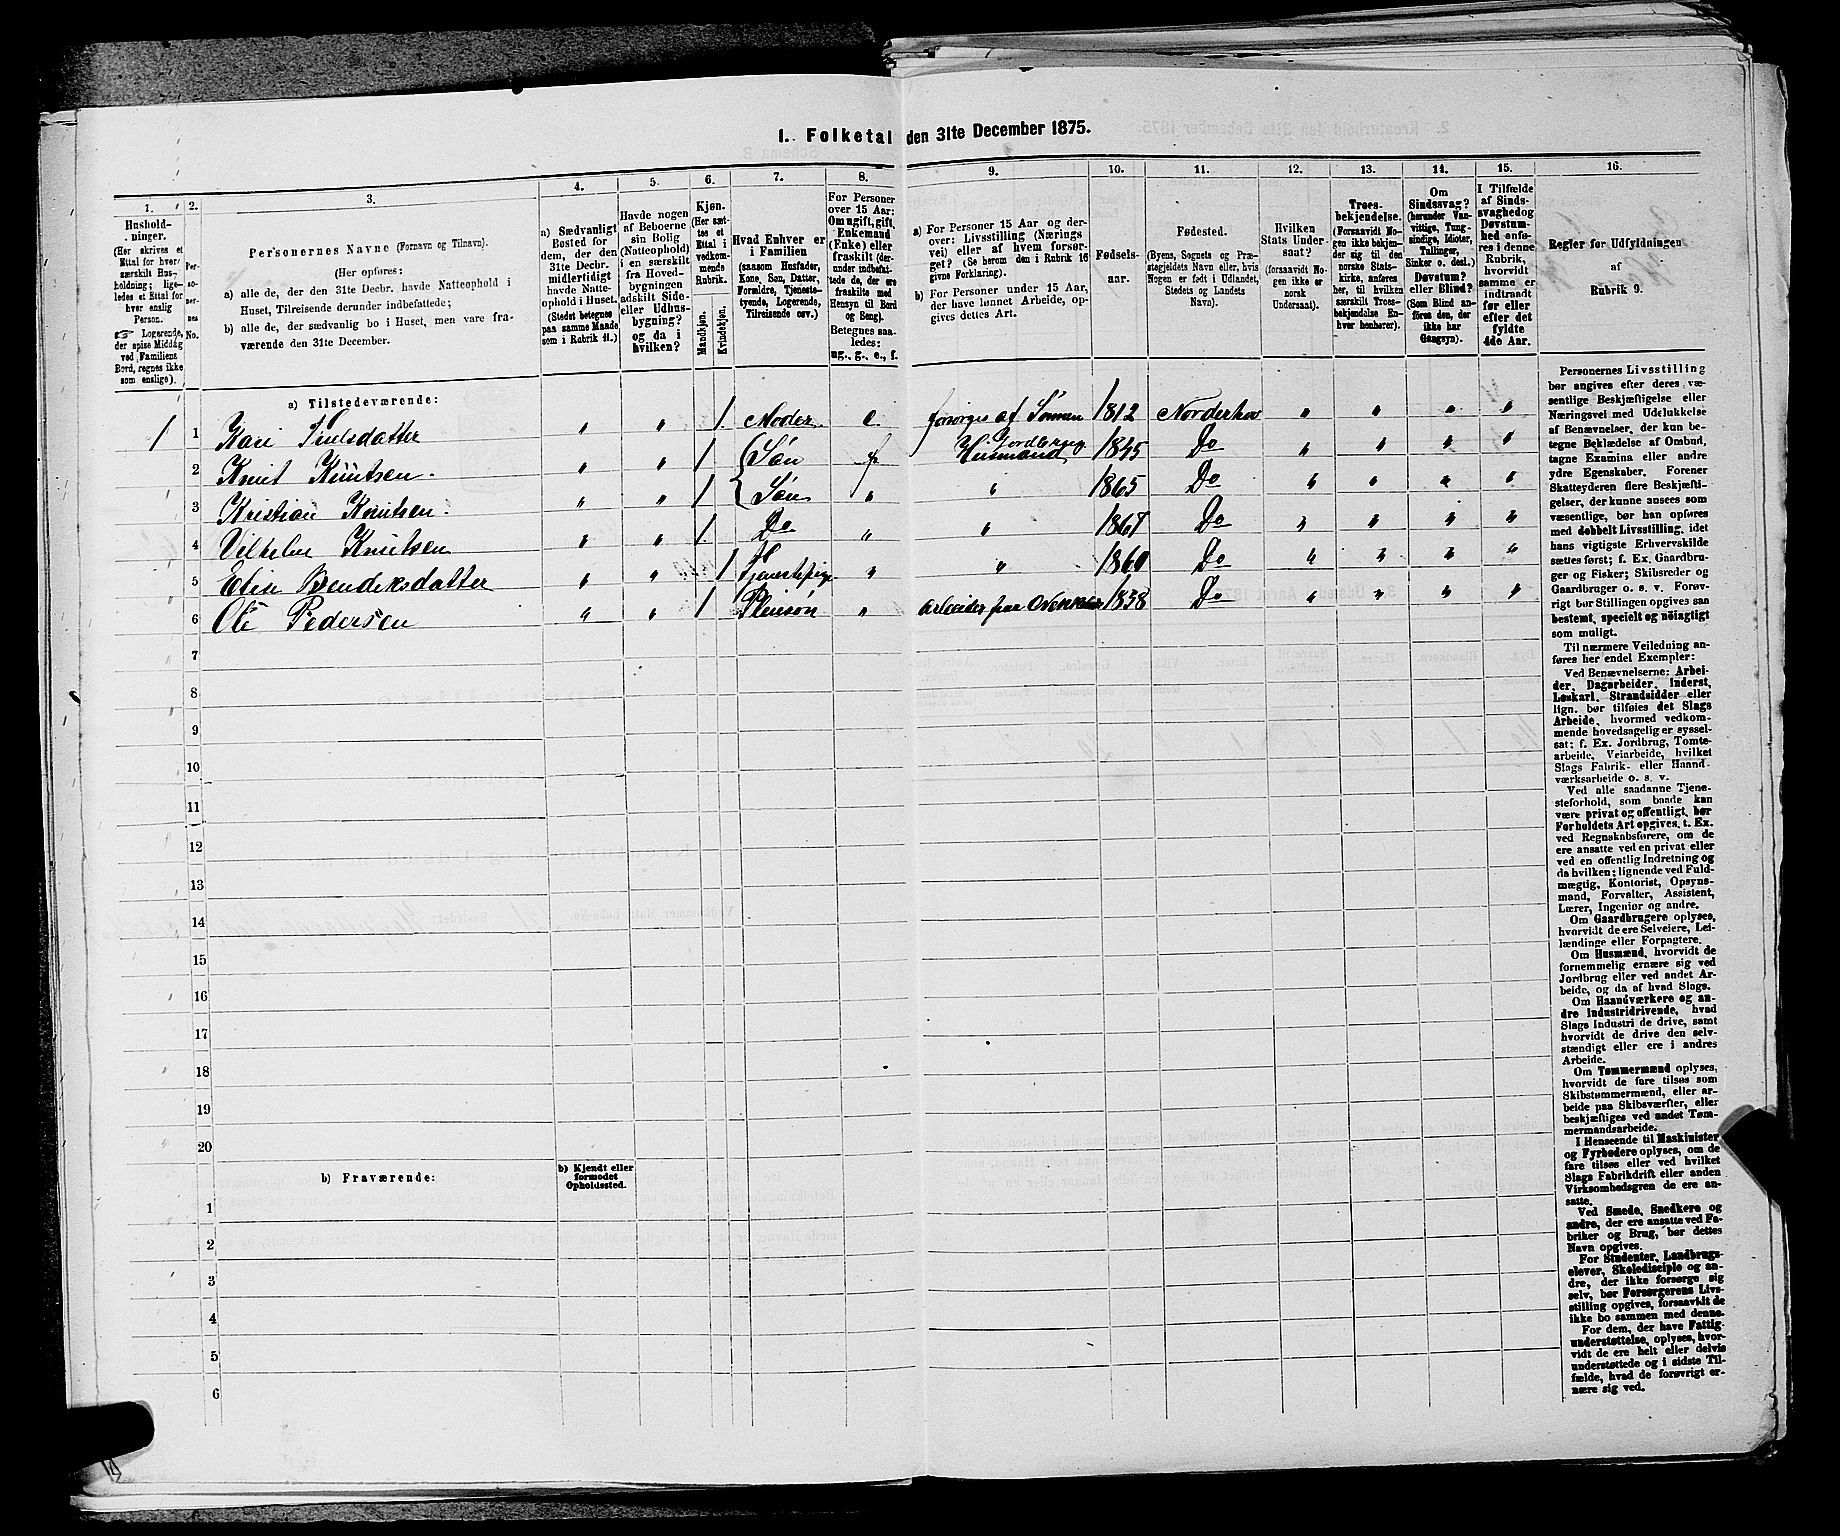 1. Folketal den 31te December 1875.
1. 2. 3. 4. 5. 6. 7. 8. 9. 10. 11. 12. 13. 14. 15. 16.
Hushold-
ninger.
(Her skrives et
Ettal for hver
særskilt Hus-
holdning; lige-
ledes et Ettal for
hver enslig
Person.
☞ Logerende,
der spise Middag
ved Familiens
Bord, regnes ikke
som enslige).
Per-
so-
ner-
nes
No.
Personernes Navne (Fornavn og Tilnavn).
(Her opføres:
a) alle de, der den 31te Decbr. havde Natteophold i
Huset, Tilreisende derunder indbefattede;
b) alle de, der sædvanlig bo i Huset, men vare fra-
værende den 31te December.
a) Sædvanligt
Bosted for
dem, der den
31te Decbr.
midlertidigt
havde Natte-
ophold i Huset.
(Stedet betegnes
paa samme Maade
som i Rubrik 11.)
Havde nogen
af Beboerne
sin Bolig
(Natteophold)
i en særskilt
fra Hoved-
bygningen
adskilt Side-
eller Udhus-
bygning?
og da i
hvilken?
Kjøn.
(Her sæt-
tes et
Ettal i
vedkom-
mende
Rubrik.
Mandkjøn.
Kvindekjøn.
Hvad Enhver er
i Familien
(saasom Husfader,
Kone, Søn, Datter,
Forældre, Tjeneste-
tyende, Logerende,
Tilreisende osv.)
For Personer
over 15 Aar:
Om ugift, gift,
Enkemand
(Enke) eller
fraskilt (der-
under indbefat-
tede de, der ere
fraskilte med
Hensyn til Bord
og Seng).
Betegnes saa-
ledes:
ug., g., e., f.
a) For Personer 15 Aar og der-
over: Livsstilling (Nærings
vei) eller af hvem forsør-
get? (Se herom den i Rubrik 16
givne Forklaring).
b) For Personer under 15 Aar,
der have lønnet Arbeide, op-
gives dettes Art.
Fødsels-
aar.
Fødested.
(Byens, Sognets og Præ-
stegjeldets Navn eller, hvis
Nogen er født i Udlandet,
Stedets og Landets
Navn).
Hvilken
Stats Under-
saat?
(forsaavidt No-
gen ikke er
norsk
Undersaat).
Troes-
bekjendelse.
(Forsaavidt No-
gen ikke bekjen-
der sig til den
norske Stats-
kirke, anføres
her, til hvilken
særskilt Troes-
bekjendelse En-
hver henhører).
Om
Sindssvag?
(herunder Van-
vittige, Tung-
sindige, Idioter,
Tullinger,
Sinker o. desl.)
Døvstum?
eller Blind?
(Som Blind an-
føres den, der
ikke har
Gangsyn).
I Tilfælde
af Sinds-
svaghed og
Døvstum-
hed anfø-
res i denne
Rubrik,
hvorvidt
samme er
indtraadt
før eller
efter det
fyldte
4de Aar.
Regler før Udfyldningen
af
Rubrik 9.
a) Tilstedeværende:
1 1 Kari " " 1. Moder e. forsørges af Sønnen 1812 Norderhov " " " "
2 Knut Knutsen. " " 1 Søn f Husmand Jordbrug 1845 Do " " " "
3 Kristian Knutsen. " " 1 Søn " " 1865 Do " " " "
4 Vilhelm Knutsen " " 1. Do " " 1867 Do " " " "
5 Elise Bendiksdatter " " 1 Tjenestepige " " 1860 Do " " " "
6 Ole Pedersen " " 1 Pleiesøn " Arbeider paa 1858 Do " " " "
7
8
9
10
11
12
13
14
15
16
17
18
19
20
b) Fraværende:
b) Kjendt eller
formodet
Opholdssted.
1
2
3
4
5
6
Personernes Livsstilling
bør angives efter deres væ-
sentlige Beskjæftigelse eller
Næringsvei med Udelukkelse
af Benævnelser, der kun be-
tegne Beklædelse af Ombud,
tagne Examina eller andre
ydre Egenskaber. Forener
Skatteyderen flere Beskjæfti-
gelser, der kunne ansees som
væsentlige, bør han opføres
med dobbelt Livsstilling, idet
hans vigtigste Erhvervskilde
sættes først; f. Ex. Gaardbru-
ger og Fisker; Skibsreder og
Gaardbruger o. s. v. Forøv-
rigt bør Stillingen opgives saa
bestemt, specielt og nøiagtigt
som muligt.
Til nærmere Veiledning an-
føres her endel Exempler:
Ved Benævnelserne: Arbei-
der, Dagarbeider, Inderst,
Løskarl, Strandsidder eller
lign. bør tilføies det Slags
Arbeide, hvormed vedkom-
mende hovedsagelig er syssel-
sat; f. Ex. Jordbrug, Tomte-
arbeide, Veiarbeide, hvilket
Slags Fabrik- eller Haand-
værksarbeide o. s. v.
Ved alle saadanne Tjene-
steforhold, som baade kan
være privat og offentligt, bør
Forholdets Art opgives, t. Ex.
ved Regnskabsførere, om de
ere ansatte ved en privat eller
ved en offentlig Indretning og
da hvilken; lignende ved Fuld-
mægtig, Kontorist, Opsyns-
mand, Forvalter, Assistent,
Lærer, Ingeniør og andre.
Om Gaardbrugere oplyses,
hvorvidt de ere Selveiere, Lei-
lændinge eller Forpagtere.
Om Husmænd, hvorvidt de
fornemmelig ernære sig ved
Jordbrug eller ved andet Ar-
beide, og da af hvad Slags.
Om Haandværkere og an-
dre Industridrivende, hvad
Slags Industri de drive, samt
hvorvidt de drive den selv-
stændigt eller ere i andres
Arbeide.
Om Tømmermænd oplyses,
hvorvidt de fare tilsøs som
Skibstømmermænd, eller ar-
beide paa Skibsværfter, eller
beskjæftiges ved andet Tøm-
mermandsarbeide.
I Henseende til Maskinister
og Fyrbødere oplyses, om de
fare tilsøs eller ved hvilket
Slags Fabrikdrift eller anden
Virksomhedsgren de ere an-
satte.
Ved Smede, Snedkere og
andre, der ere ansatte ved Fa-
briker og Brug, bør dettes
Navn opgives.
For Studenter, Landbrugs-
elever, Skoledisciple og an-
dre, der ikke forsørge sig
selv, bør Forsørgerens Livs-
stilling opgives, forsaavidt de
ikke bo sammen med denne.
For dem, der have Fattig-
understøttelse, oplyses, hvor-
vidt de ere helt eller delvis
understøttede og i sidste Til-
fælde, hvad de forøvrigt er-
nære sig ved.